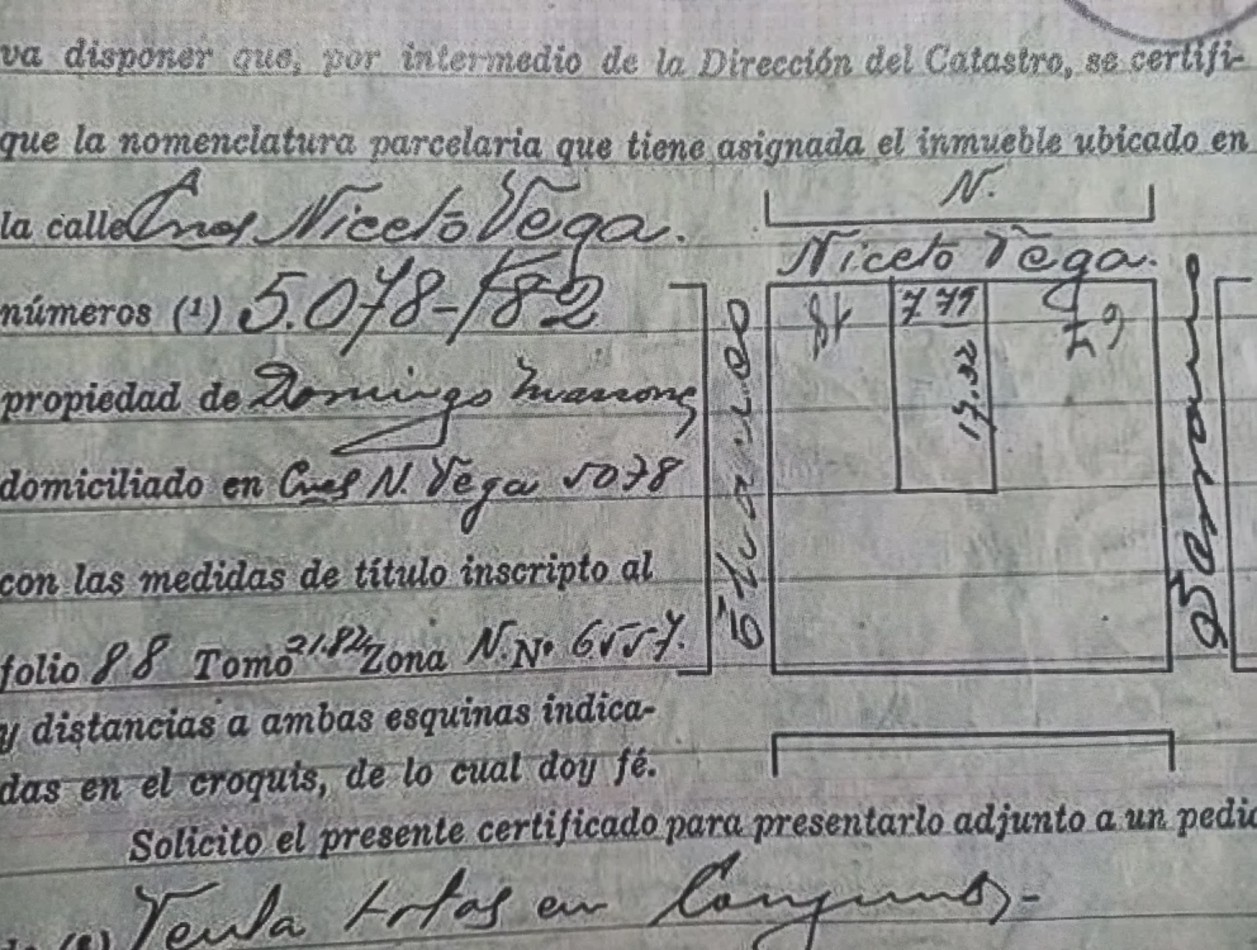 va disponer que, por intermedio de la Dirección del Catastro, se certifi-
que la nomenclatura parcelaria que tiene asignada el inmueble ubicado en
la calle Niceto Vega.
números (1) 5.078-/82
propiedad de Domingo
domiciliado en N. Vega 5078
con las medidas de título inscripto al
folio 88 Tomo 21.82 Zona N. Nº 6557.
y distancias a ambas esquinas indica-
das en el croquis, de lo cual doy fé.
Solicito el presente certificado para presentarlo adjunto a un pedi
Venta en
N.
Niceto Vega.
7 79
17.32
Serrano